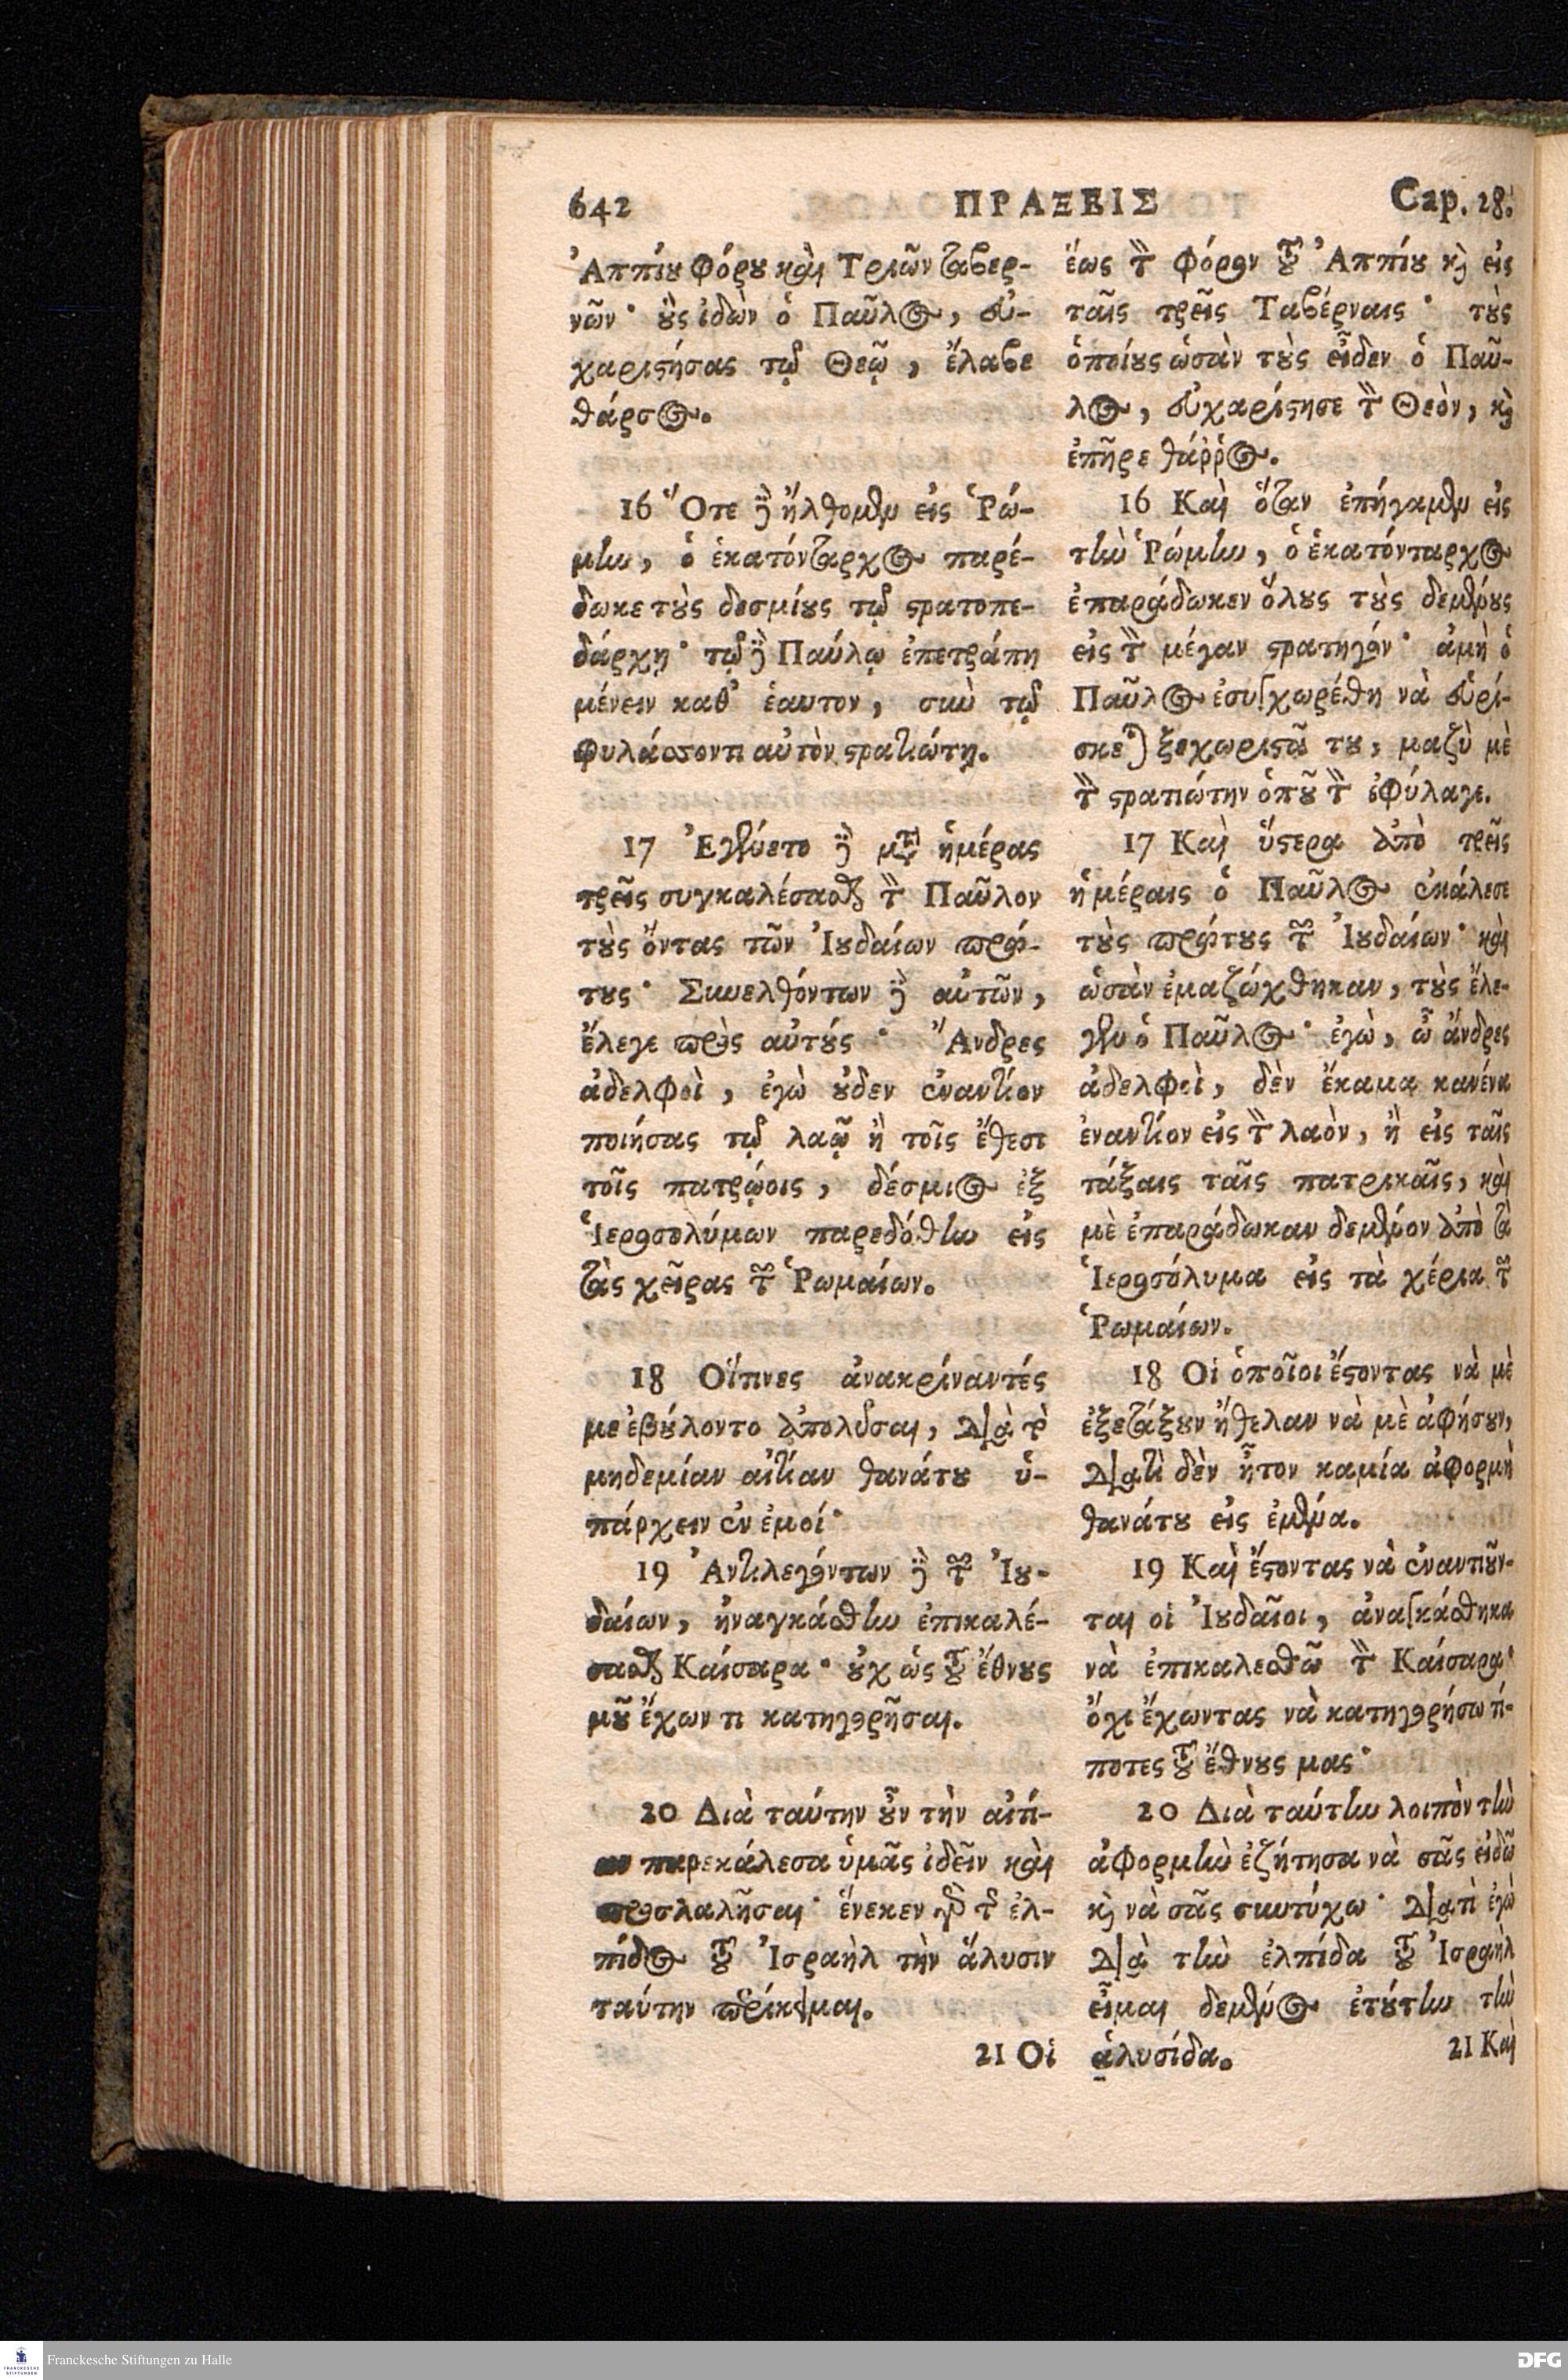 642 ΠΡΑΞΕΙΣ Cap. 28.
Ἀππίου Φόρου καὶ Τριῶν ταβερ-
νῶν· οὓς ἰδὼν ὁ Παῦλος, εὐ-
χαριστήσας τῷ Θεῷ, ἔλαβε
θάρσος.
16 Ὅτε δὲ ἤλθομεν εἰς Ῥώ-
μην, ὁ ἑκατόνταρχος παρέ-
δωκε τοὺς δεσμίους τῷ στρατοπε-
δάρχῃ· τῷ δὲ Παύλῳ ἐπετράπη
μένειν καθ' ἑαυτον, σὺν τῷ
φυλάσσοντι αὐτὸν στρατιώτῃ.
17 Ἐγένετο δὲ μετὰ ἡμέρας
τρεῖς συγκαλέσασθαι τὸν Παῦλον
τοὺς ὄντας τῶν Ἰουδαίων πρώ-
τους· Συνελθόντων δὲ αὐτῶν,
ἔλεγε πρὸς αὐτούς· Ἄνδρες
ἀδελφοὶ, ἐγὼ οὐδεν ἐναντίον
ποιήσας τῷ λαῷ ἢ τοῖς ἔθεσι
τοῖς πατρῴοις, δέσμιος ἐξ
Ἱεροσολύμων παρεδόθην εἰς
τὰς χεῖρας τῶν Ῥωμαίων.
18 Οἵτινες ἀνακρίναντές
με ἐβούλοντο ἀπολῦσαι, διὰ τὸ
μηδεμίαν αἰτίαν θανάτου ὑ-
πάρχειν ἐν ἐμοί·
19 Ἀντιλεγόντων δὲ τῶν Ἰου-
δαίων, ἠναγκάσθην ἐπικαλέ-
σασθαι Καίσαρα· οὐχ ὡς τοῦ ἔθνους
μοῦ ἔχων τι κατηγορῆσαι.
20 Διὰ ταύτην οὖν τὴν αἰτί-
αν παρεκάλεσα ὑμᾶς ἰδεῖν καὶ
προσλαλῆσαι· ἕνεκεν γὰρ τῆς ἐλ-
πίδος τοῦ Ἰσραὴλ τὴν ἅλυσιν
ταύτην περίκειμαι.
21 Οἱ
ἕως τὸν Φόρον τοῦ Ἀππίου καὶ εἰς
ταῖς τρεῖς Ταβέρναις· τοὺς
ὁποίους ὡσὰν τοὺς εἶδεν ὁ Παῦ-
λος, εὐχαρίστησε τὸν Θεὸν, καὶ
ἐπῆρε θάῤῥος.
16 Καὶ ὅταν ἐπήγαμεν εἰς
τὴν Ῥώμην, ὁ ἑκατόνταρχος
ἐπαράδωκεν ὅλους τοὺς δεμένους
εἰς τὸν μέγαν στρατηγόν· ἀμὴ ὁ
Παῦλος ἐσυγχωρέθη νὰ εὑρί-
σκεται ξεχωριστῶ του, μαζὺ μὲ
τὸν στρατιώτην ὁποῦ τὸν ἐφύλαγε.
17 Καὶ ὕστερα ἀπὸ τρεῖς
ἡμέραις ὁ Παῦλος ἐκάλεσε
τοὺς πρώτους τῶν Ἰουδαίων· καὶ
ὡσὰν ἐμαζώχθηκαν, τοὺς ἔλε-
γεν ὁ Παῦλος· ἐγὼ, ὦ ἄνδρες
ἀδελφοὶ, δὲν ἔκαμα κανένα
ἐναντίον εἰς τὸν λαὸν, ἢ εἰς ταῖς
τάξαις ταῖς πατρικαῖς, καὶ
μὲ ἐπαράδωκαν δεμένον ἀπὸ τὰ
Ἱεροσόλυμα εἰς τὰ χέρια τῶν
Ῥωμαίων.
18 Οἱ ὁποῖοι ἔστοντας νὰ μὲ
ἐξετάξουν ἤθελαν νὰ μὲ ἀφήσουν,
διατὶ δὲν ἦτον καμία ἀφορμὴ
θανάτου εἰς ἐμένα.
19 Καὶ ἔστοντας νὰ ἐναντιοῦν-
ται οἱ Ἰουδαῖοι, ἀναγκάσθηκα
νὰ ἐπικαλεσθῶ τὸν Καίσαρα·
ὄχι ἔχωντας νὰ κατηγορήσω τί-
ποτες τοῦ ἔθνους μας·
20 Διὰ ταύτην λοιπὸν τὴν
ἀφορμὴν ἐζήτησα νὰ σᾶς εἰδῶ
καὶ νὰ σᾶς συντύχω· διατὶ ἐγὼ
διὰ τὴν ἐλπίδα τοῦ Ἰσραὴλ
εἶμαι δεμένος ἐτούτην τὴν
ἁλυσίδα.
21 Καὶ
Franckesche Stiftungen zu Halle
FRANCKESCHE STIFTUNGEN
DFG